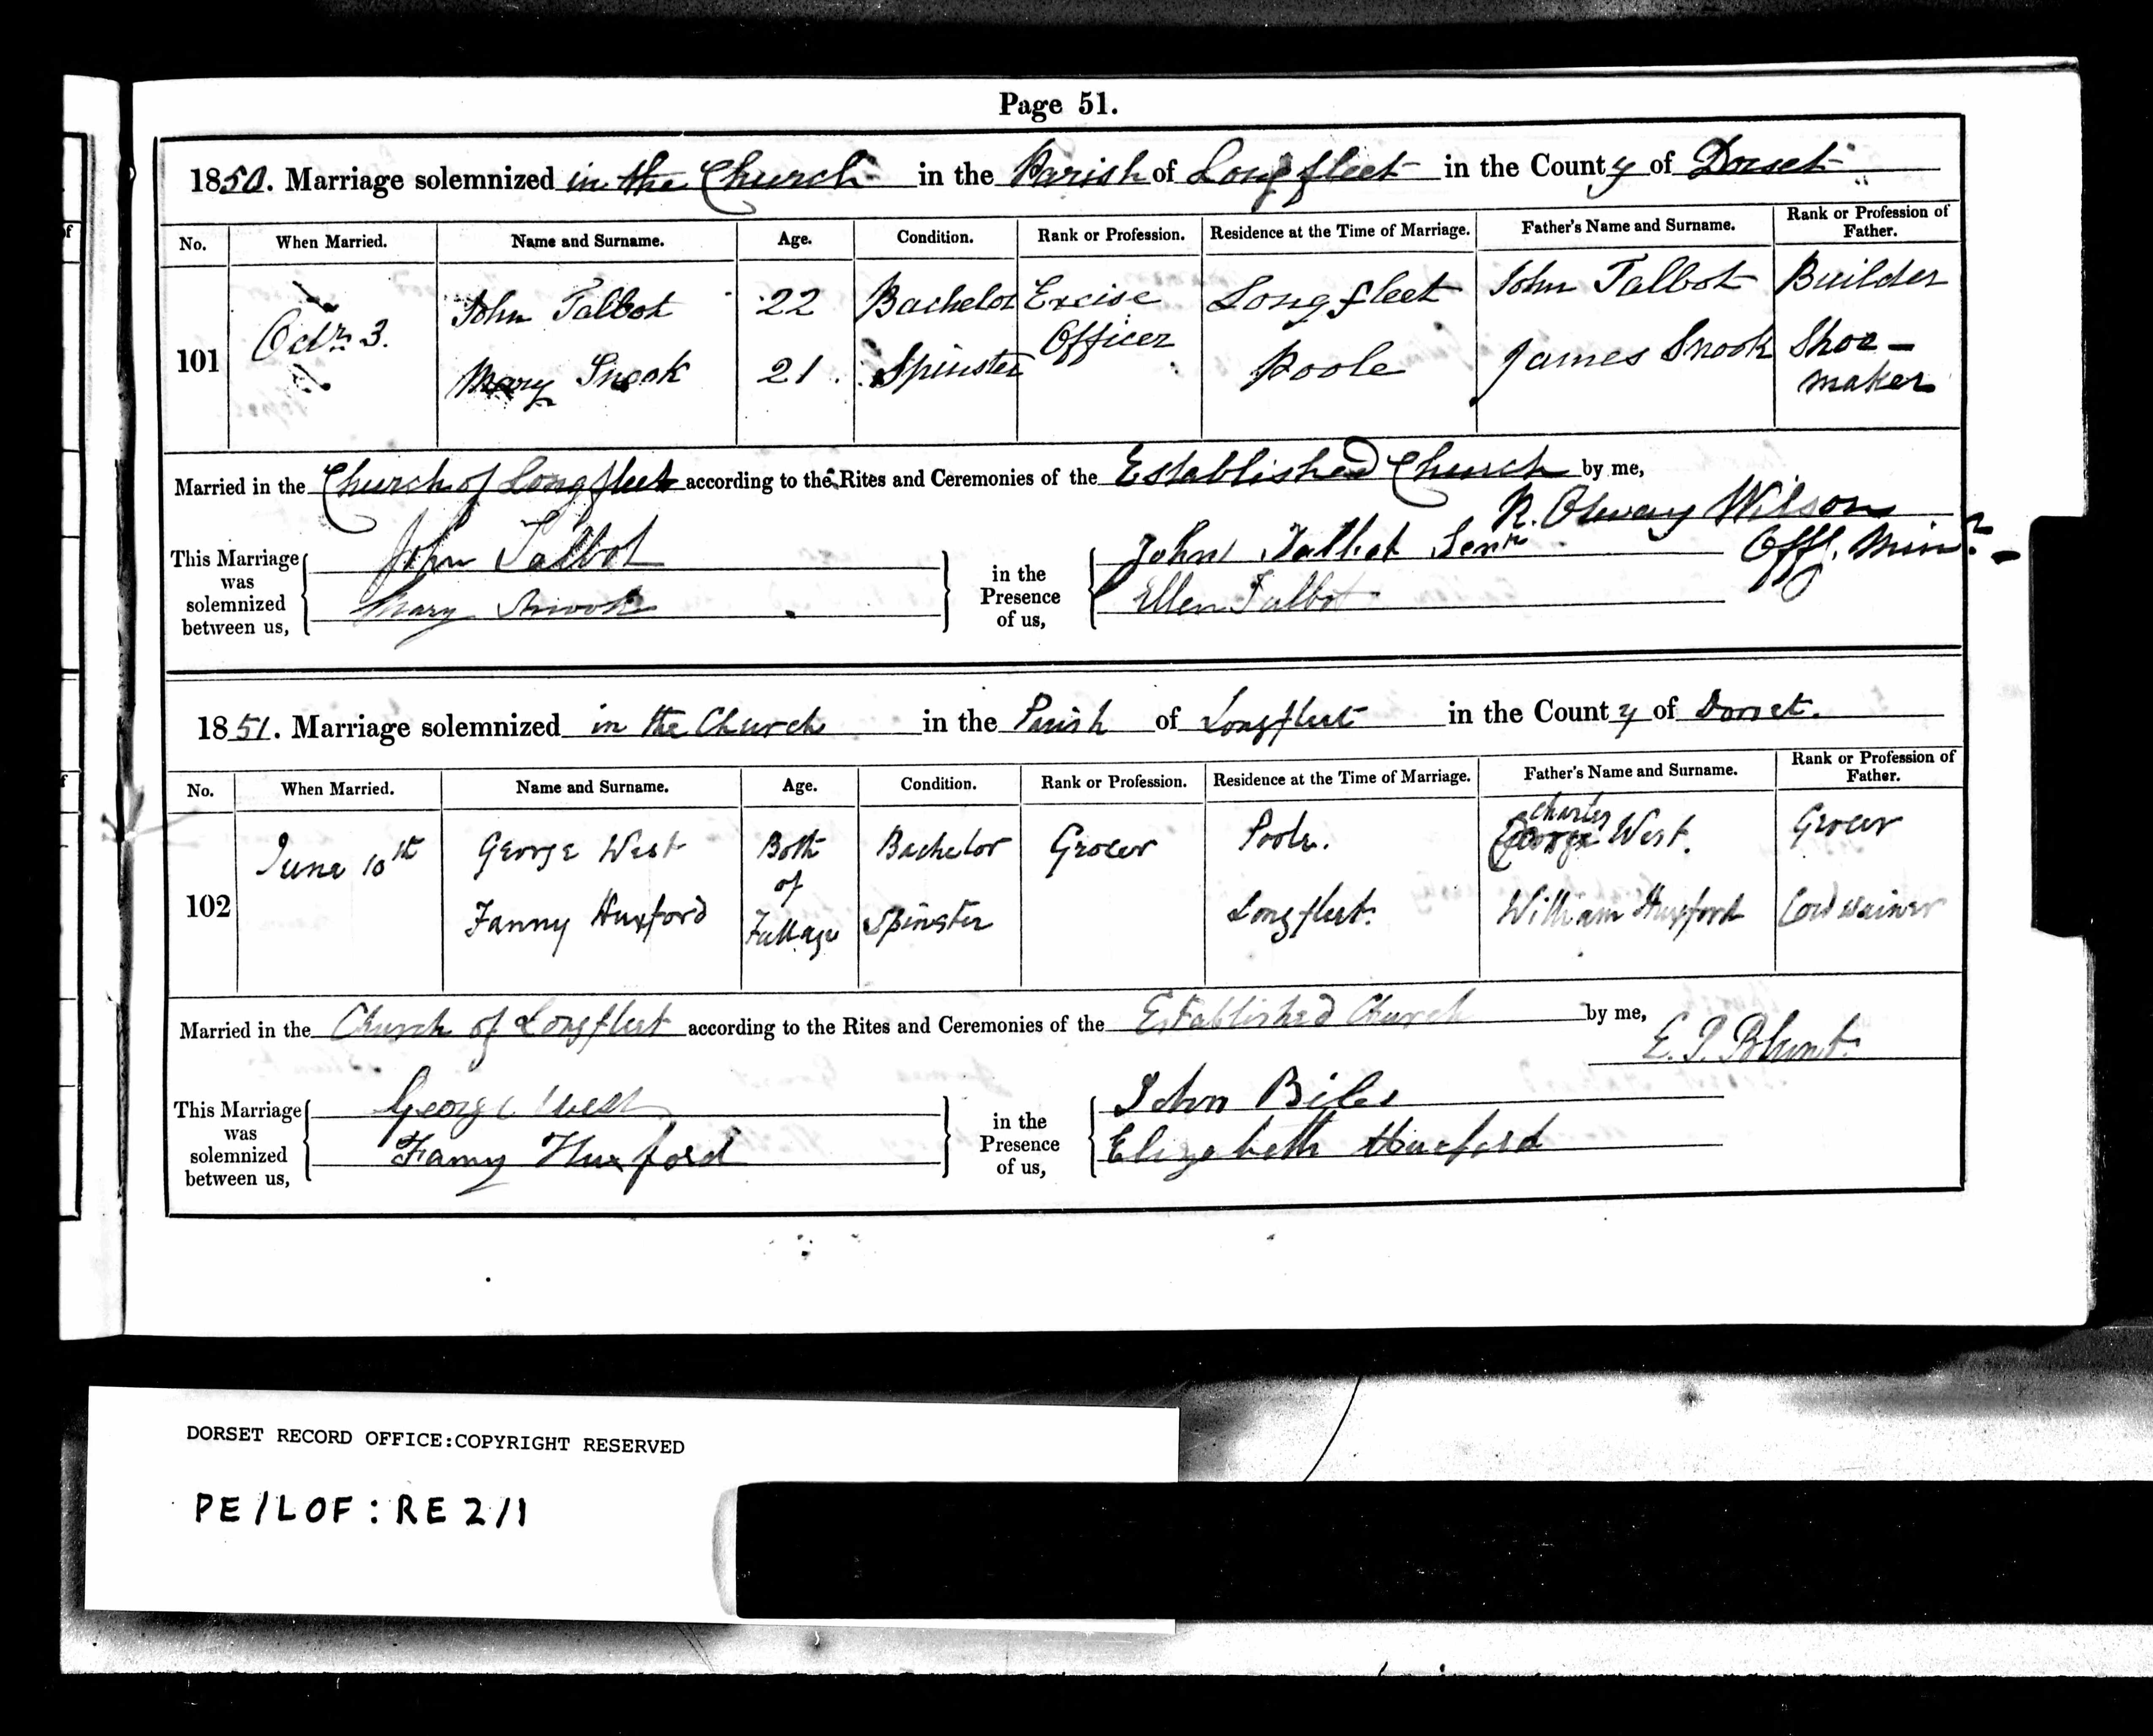 Page 51.
1850. Marriage solemnized in the Church in the Parish of Longfleet in the County of Dorset
No. When Married. Name and Surname. Age. Condition. Rank or Profession. Residence at the Time of Marriage. Father's Name and Surname. Rank or Profession of Father.
101 Octr 3. John Talbot 22 Bachelor Excise Officer Longfleet John Talbot Builder
Mary Snook 21. Spinster Poole James Snook Shoe-maker
Married in the Church of Longfleet according to the Rites and Ceremonies of the Established Church by me,
R. Wilson
Offg. Minr
This Marriage was solemnized between us, John Talbot in the Presence of us, John Talbot Senr
Mary Snook Ellen Talbot
1851. Marriage solemnized in the Church in the Parish of Longfleet in the County of Dorset.
No. When Married. Name and Surname. Age. Condition. Rank or Profession. Residence at the Time of Marriage. Father's Name and Surname. Rank or Profession of Father.
102 June 10th George West Both of Full age Bachelor Grocer Poole. Charles George West. Grocer
Fanny Huxford Spinster Longfleet. William Huxford Cordwainer
Married in the Church of Longfleet according to the Rites and Ceremonies of the Established Church by me,
E. P. Blunt.
This Marriage was solemnized between us, George West in the Presence of us, John Biles
Fanny Huxford Elizabeth Huxford
DORSET RECORD OFFICE:COPYRIGHT RESERVED
PE/LOF:RE2/1